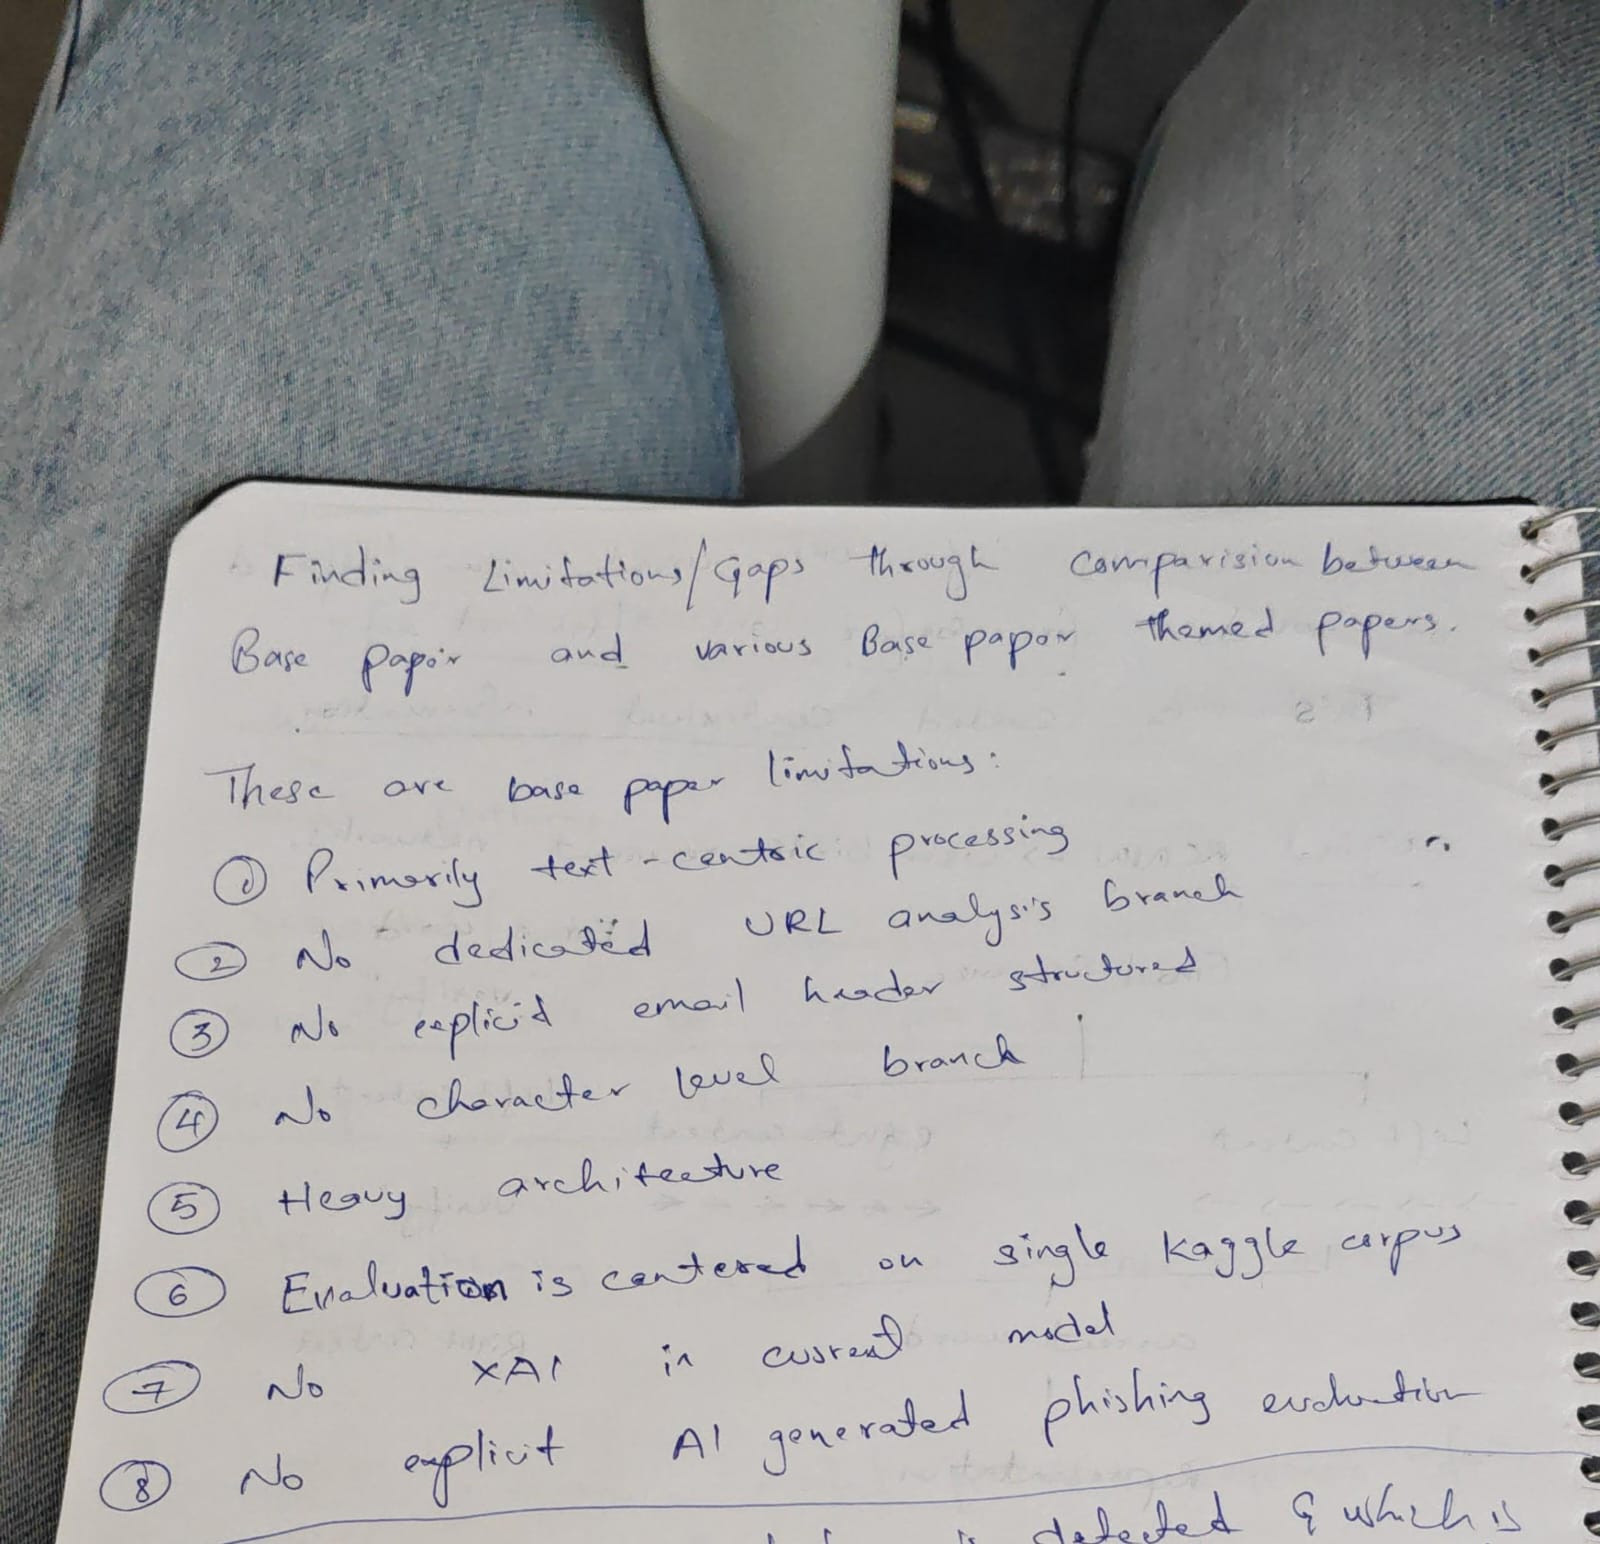 Finding Limitations/Gaps through Comparision between
Base paper and various Base paper themed papers.
These are base paper limitations:
① Primarily text-centric processing
② No dedicated URL analysis branch
③ No explicit email header structured
④ No character level branch
⑤ Heavy architecture
⑥ Evaluation is centered on single Kaggle corpus
⑦ No XAI in current model
⑧ No explicit AI generated phishing evaluation
detected & which is